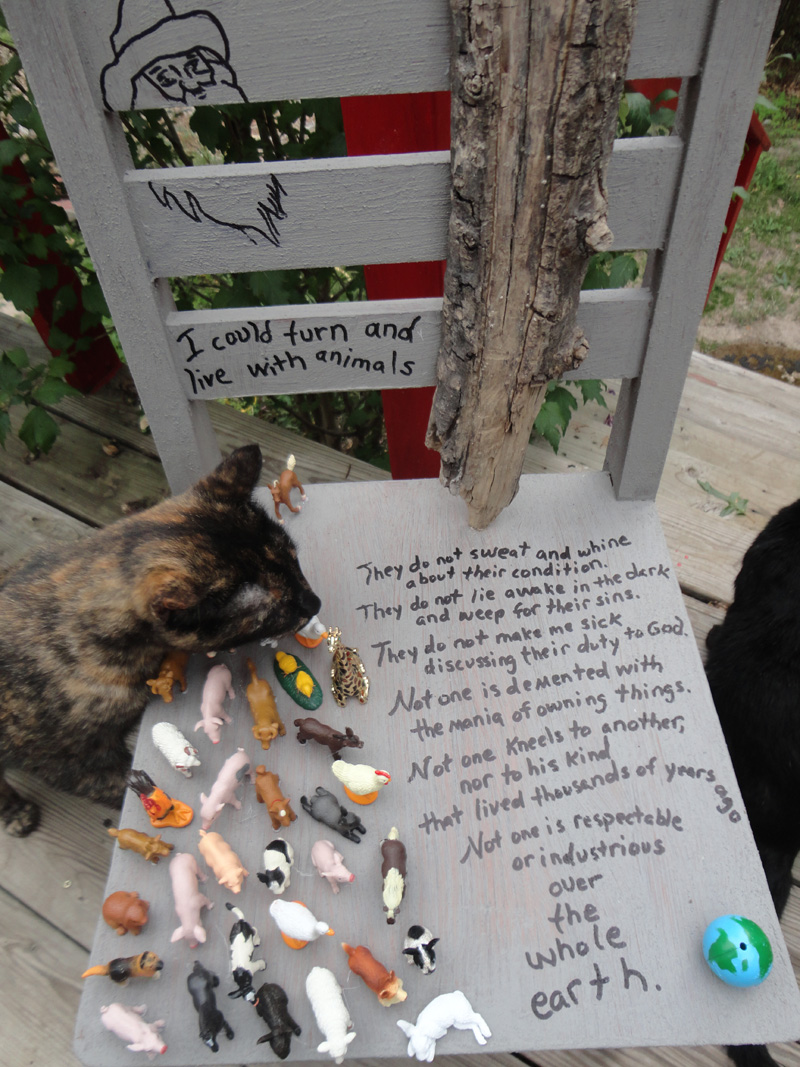 I could turn and
live with animals
They do not sweat and whine
about their condition.
They do not lie awake in the dark
and weep for their sins.
They do not make me sick
discussing their duty to God.
Not one is demented with
the mania of owning things.
Not one kneels to another,
nor to his kind
that lived thousands of years ago
Not one is respectable
or industrious
over
the
whole
earth.